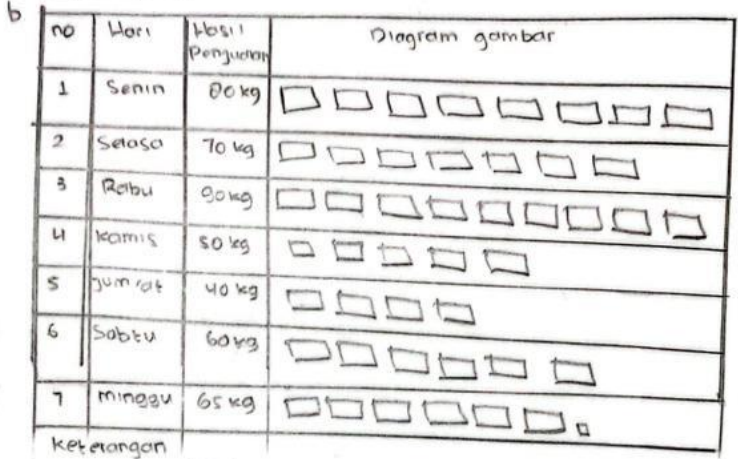 b
no Hari Hasil Penjualan Diagram gambar
1 Senin 80 kg
2 Selasa 70 kg
3 Rabu 90kg
4 Kamis 50 kg
5 Jum'at 40 kg
6 Sabtu 60kg
7 minggu 65 kg
keterangan